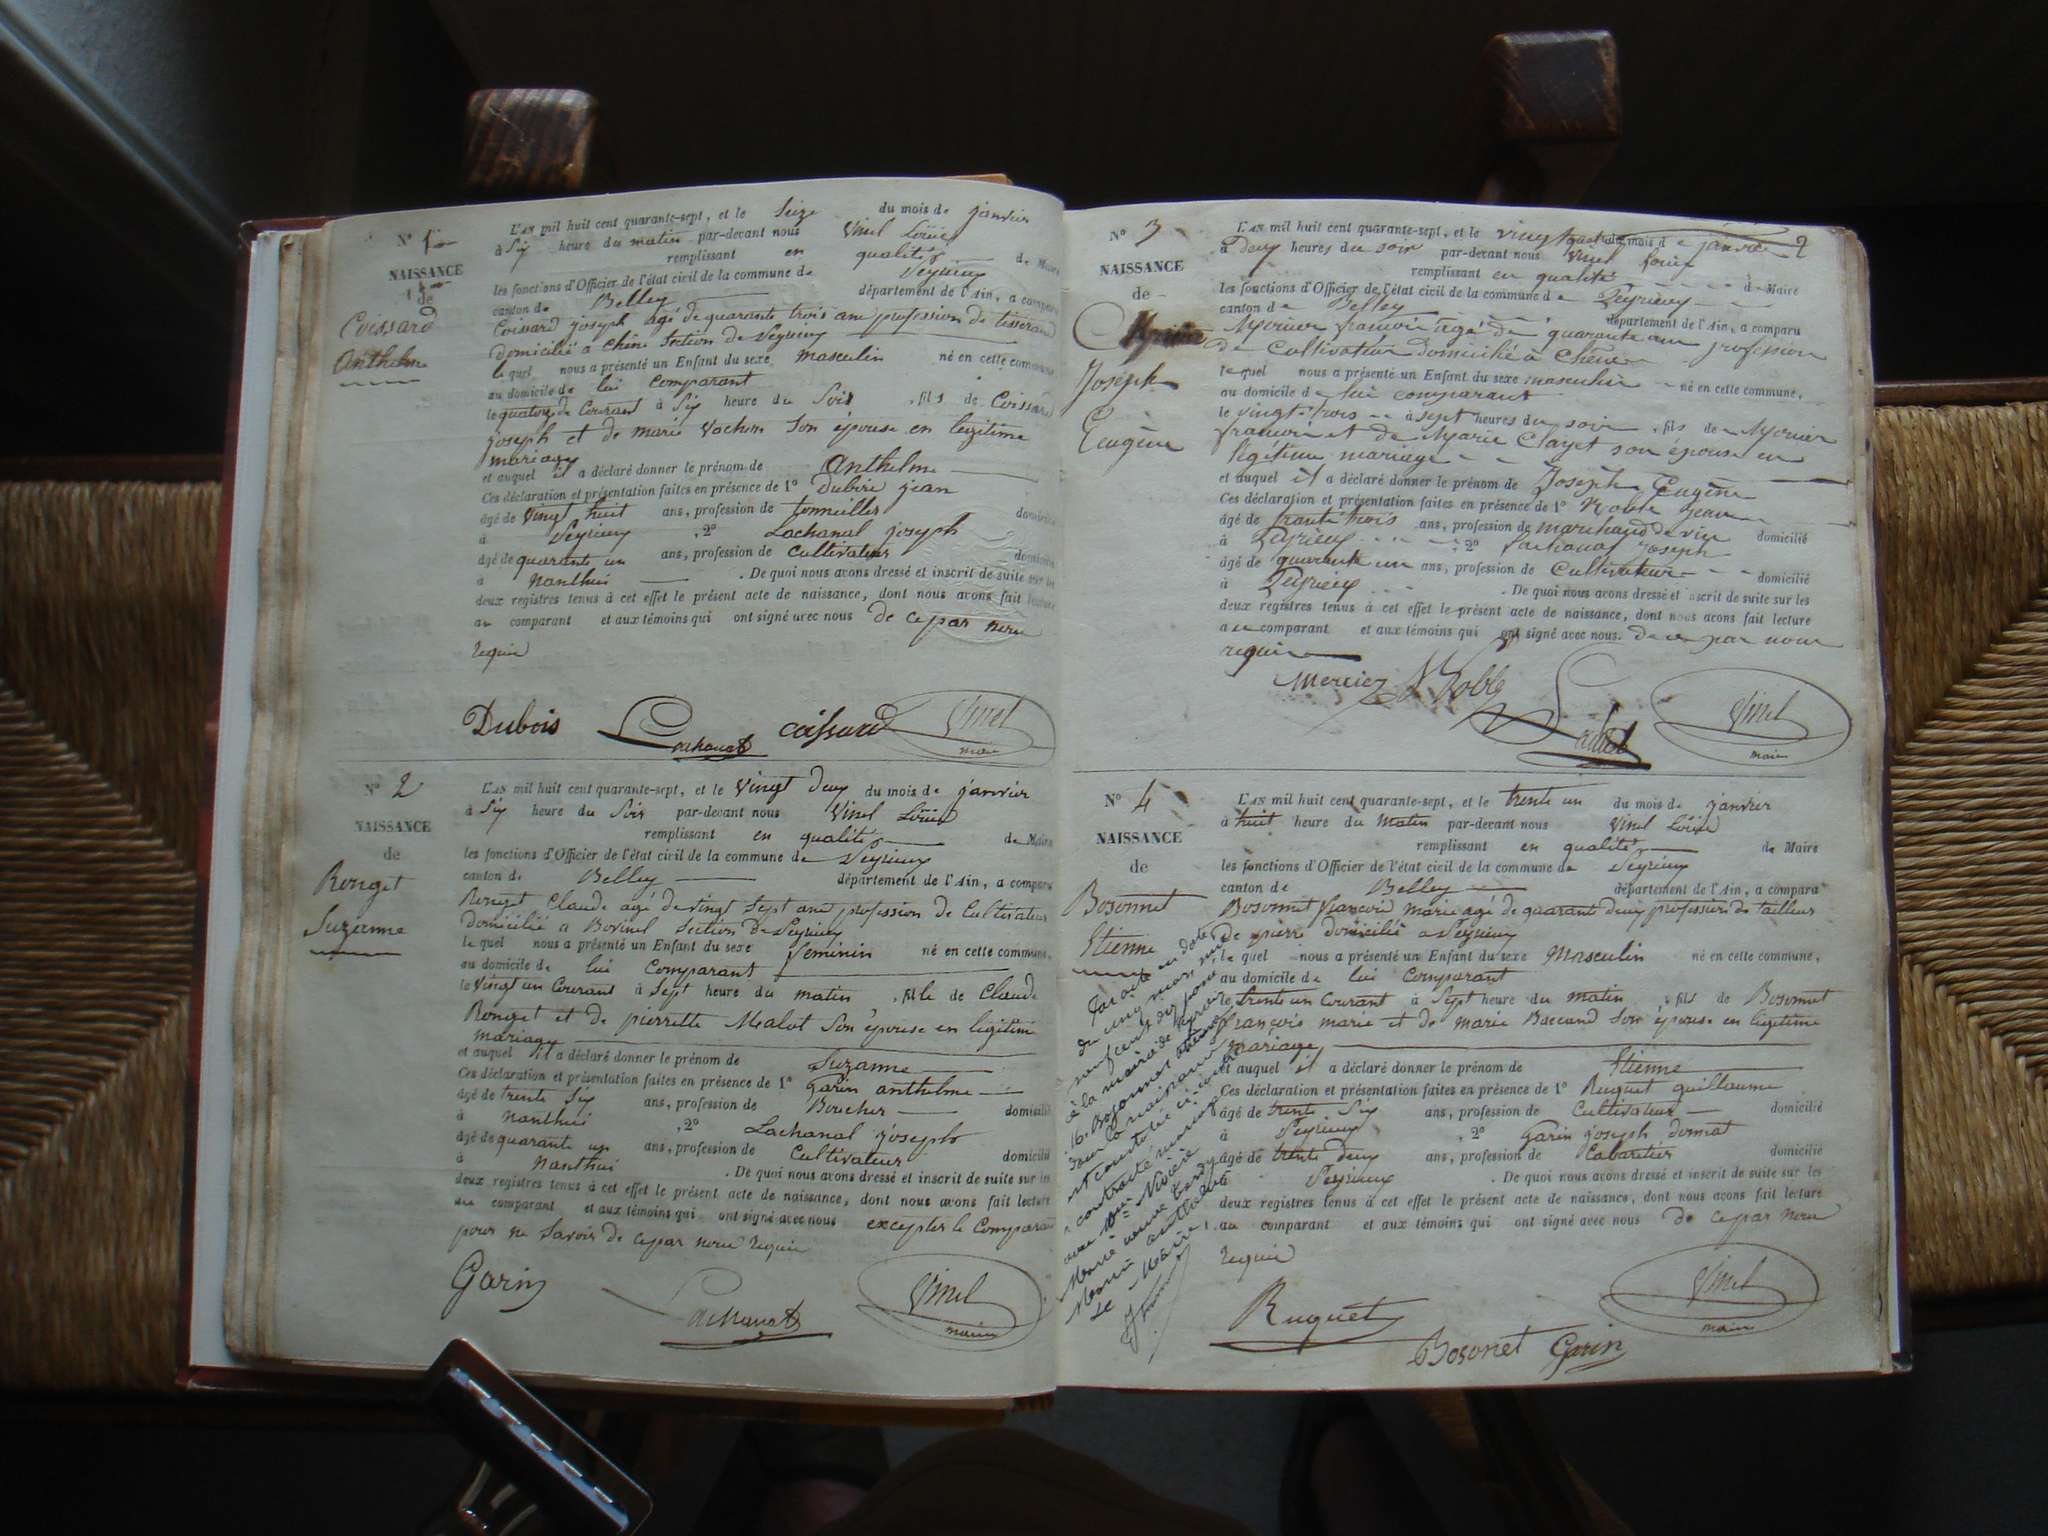 N° 1
NAISSANCE
de
Coissard
Anthelme
L'AN mil huit cent quarante-sept, et le Seize du mois de janvier
à Six heure du matin par-devant nous Vinel Loüis
remplissant en qualité de Maire
les fonctions d'Officier de l'état civil de la commune de Peyrieux
canton de Belley département de l'Ain, a comparu
Coissard joseph agé de quarante trois ans profession de tisserand
domicilié a Chêne Section de Peyrieux
le quel nous a présenté un Enfant du sexe masculin né en cette commune
au domicile de lui comparant
le quatorze Courant à Six heure du Soir , fils de Coissard
joseph et de marie Vochon Son épouse en legitime
mariage
et auquel il a déclaré donner le prénom de Anthelme
Ces déclaration et présentation faites en présence de 1° Dubois jean
âgé de Vingt huit ans, profession de tonnellier domicilié
à Peyrieux , 2° Lachanal joseph
âgé de quarante un ans, profession de Cultivateur domicilié
à nanthui . De quoi nous avons dressé et inscrit de suite sur les
deux registres tenus à cet effet le présent acte de naissance, dont nous avons fait lecture
au comparant et aux témoins qui ont signé avec nous de ce par nous
requis
Dubois Lachanal coissard Vinel
maire
N° 2
NAISSANCE
de
Rouget
Suzanne
L'AN mil huit cent quarante-sept, et le Vingt deux du mois de janvier
à Six heure du Soir par-devant nous Vinel Loüis
remplissant en qualité de Maire
les fonctions d'Officier de l'état civil de la commune de Peyrieux
canton de Belley département de l'Ain, a comparu
Rouget Claude agé de vingt Sept ans profession de Cultivateur
domicilié a Bovinel Section de Peyrieux
le quel nous a présenté un Enfant du sexe feminin né en cette commune,
au domicile de lui Comparant
le Vingt un Courant à Sept heure du matin , fille de Claude
Rouget et de pierrette Malot Son épouse en légitime
mariage
et auquel il a déclaré donner le prénom de Suzanne
Ces déclaration et présentation faites en présence de 1° Garin anthelme
âgé de trente Six ans, profession de Boucher domicilié
à nanthui , 2° Lachanal joseph
âgé de quarante un ans, profession de Cultivateur domicilié
à nanthui . De quoi nous avons dressé et inscrit de suite sur les
deux registres tenus à cet effet le présent acte de naissance, dont nous avons fait lecture
au comparant et aux témoins qui ont signé avec nous excepter le Comparant
pour ne Savoir de ce par nous requis
Garin Lachanal Vinel
maire
N° 3
2
NAISSANCE
de
Joseph
Eugène
L'AN mil huit cent quarante-sept, et le vingt quatre du mois de janvier
à Deux heures du soir par-devant nous Vinel Louis
remplissant en qualité de Maire
les fonctions d'Officier de l'état civil de la commune de Peyrieux
canton de Belley département de l'Ain, a comparu
françois agé de quarante ans profession
de Cultivateur domicilié à Chêne
le quel nous a présenté un Enfant du sexe masculin né en cette commune,
au domicile de lui comparant
le vingt-trois à sept heures du soir , fils de
françois et de Marie Clayet son épouse en
légitime mariage
et auquel il a déclaré donner le prénom de Joseph Eugène
Ces déclaration et présentation faites en présence de 1° Noble Jean
âgé de trente trois ans, profession de marchand de vin domicilié
à Peyrieux , 2° Lachanal Joseph
âgé de quarante un ans, profession de Cultivateur domicilié
à Peyrieux . De quoi nous avons dressé et inscrit de suite sur les
deux registres tenus à cet effet le présent acte de naissance, dont nous avons fait lecture
au comparant et aux témoins qui ont signé avec nous. de ce par nous
requis
Mercier Noble Vinel
maire
N° 4
NAISSANCE
de
Bosonnet
Etienne
L'AN mil huit cent quarante-sept, et le trente un du mois de janvier
à huit heure du Matin par-devant nous Vinel Loüis
remplissant en qualité de Maire
les fonctions d'Officier de l'état civil de la commune de Peyrieux
canton de Belley département de l'Ain, a comparu
Bosonnet françois marie agé de quarante deux profession de tailleur
De pierre domicilié a Peyrieux
le quel nous a présenté un Enfant du sexe Masculin né en cette commune,
au domicile de lui Comparant
le trente un Courant à Sept heure du matin , fils de Bosonnet
françois marie et de marie Baccand Son épouse en legitime
mariage
et auquel il a déclaré donner le prénom de Etienne
Ces déclaration et présentation faites en présence de 1° Ruguet guillaume
âgé de trente Six ans, profession de Cultivateur domicilié
à Peyrieux , 2° Garin joseph
âgé de trente deux ans, profession de Cabaretier domicilié
Peyrieux . De quoi nous avons dressé et inscrit de suite sur les
deux registres tenus à cet effet le présent acte de naissance, dont nous avons fait lecture
au comparant et aux témoins qui ont signé avec nous de ce par nous
requis
Par acte en date
du cinq mars mil
neuf cent
à la mairie de
Bosonnet Etienne
dont la naissance
est constatée ci-contre
a contracté mariage
avec
Marie
Le Maire
Ruguet Bosonet Garin Vinel
maire